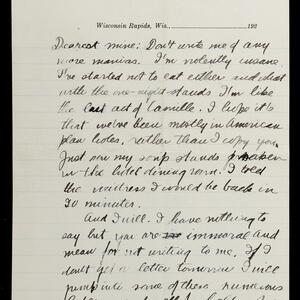 Wisconsin Rapids, Wis. 192
Dearest mine: Don't write me of any
more manias. I'm violently insane.
I've started not to eat either and what
with the one-night stands I'm like
the last act of Camille. I hope it's
that we've been mostly in American
plan hotels, rather than I copy you.
Just now my soup stands
in the hotel dining room. I told
the waitress I would be back in
30 minutes.
And I will. I have nothing to
say but you are immoral and
mean for not writing to me. If I
don't get a letter tomorrow I will
jump into some of these numerous